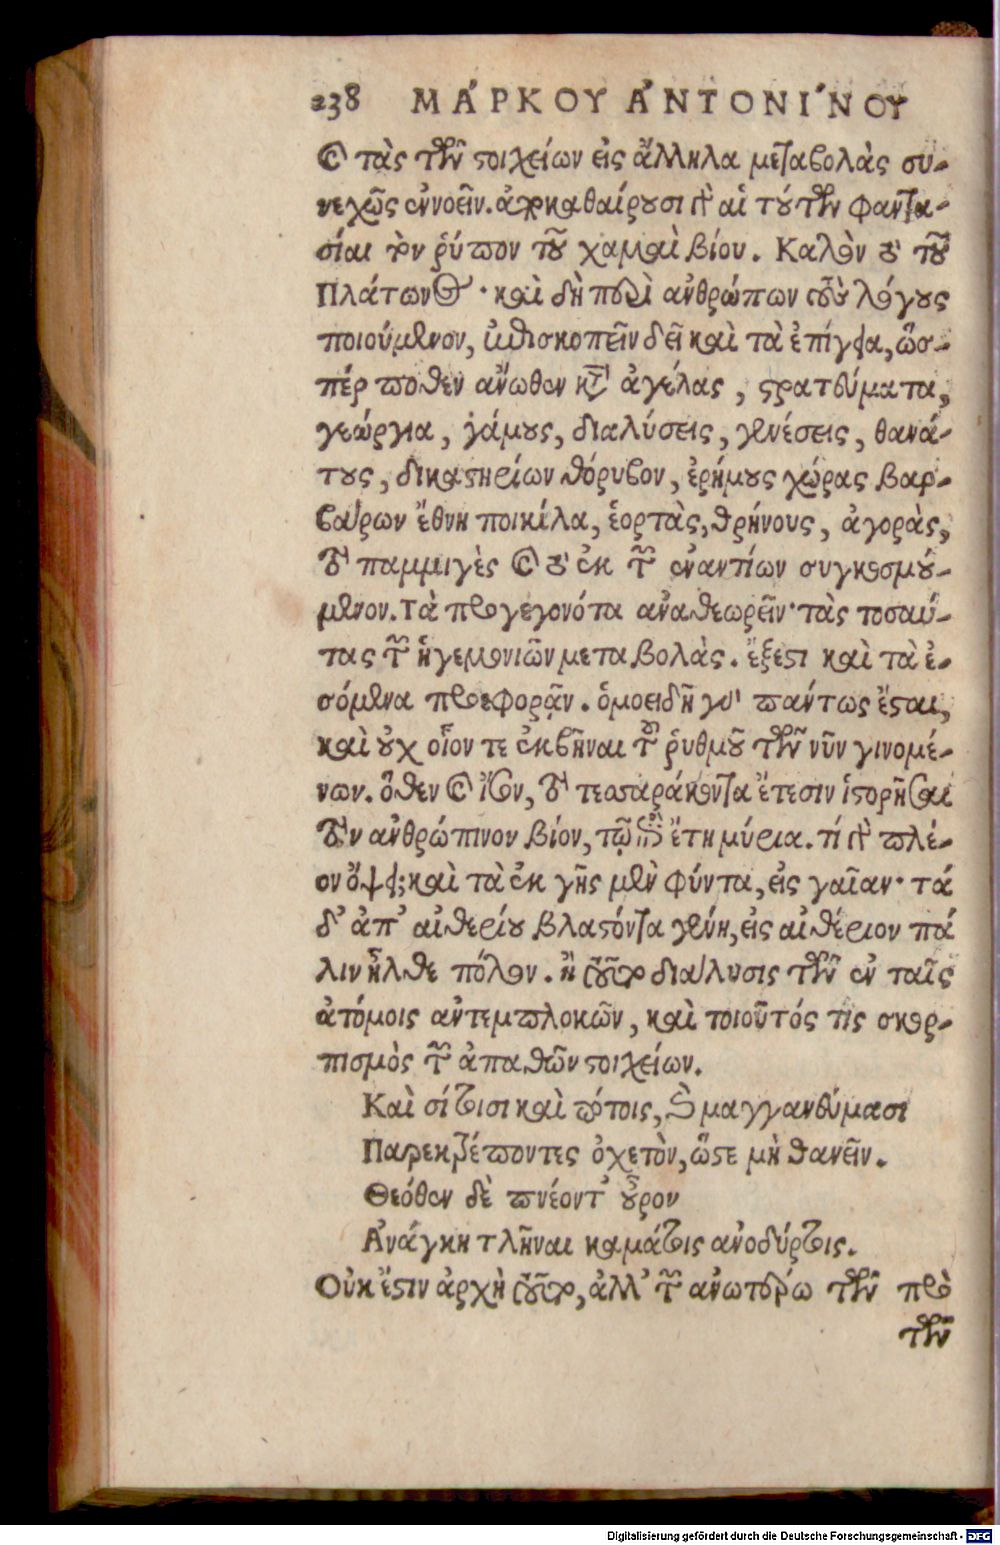 238 ΜΆΡΚΟΥ ἈΝΤΟΝΊΝΟΥ
καὶ τὰς τῶν στοιχείων εἰς ἄλληλα μεταβολὰς συ-
νεχῶς ἐννοεῖν. ἀποκαθαίρουσι γὰρ αἱ τούτων φαντα-
σίαι τὸν ῥύπον τοῦ χαμαὶ βίου. Καλὸν τὸ τοῦ
Πλάτωνος· καὶ δὴ περὶ ἀνθρώπων τοὺς λόγους
ποιούμενον, ἐπισκοπεῖν δεῖ καὶ τὰ ἐπίγεια, ὥσ-
πέρ ποθεν ἄνωθεν κατὰ ἀγέλας, στρατεύματα,
γεώργια, γάμους, διαλύσεις, γενέσεις, θανά-
τους, δικαστηρίων θόρυβον, ἐρήμους χώρας βαρ-
βάρων ἔθνη ποικίλα, ἑορτὰς, θρήνους, ἀγορὰς,
τὸ παμμιγὲς καὶ τὸ ἐκ τῶν ἐναντίων συγκοσμού-
μενον. Τὰ προγεγονότα ἀναθεωρεῖν· τὰς τοσαύ-
τας τῶν ἡγεμονιῶν μεταβολὰς. ἔξεστι καὶ τὰ ἐ-
σόμενα προεφορᾷν. ὁμοειδῆ γὰρ πάντως ἔσται,
καὶ οὐχ οἷόν τε ἐκβῆναι τοῦ ῥυθμοῦ τῶν νῦν γινομέ-
νων. ὅθεν καὶ ἴσον, τὸ τεσσαράκοντα ἔτεσιν ἱστορῆσαι
τὸν ἀνθρώπινον βίον, τῷ ἐπὶ ἔτη μύρια. τί γὰρ πλέ-
ον ὄψει; καὶ τὰ ἐκ γῆς μὲν φύντα, εἰς γαῖαν· τά
δ' ἀπ' αἰθερίου βλαστόντα γένη, εἰς αἰθέριον πά
λιν ἦλθε πόλον. ἢ τοῦτο διάλυσις τῶν ἐν ταῖς
ἀτόμοις ἀντεμπλοκῶν, καὶ τοιοῦτός τις σκορ-
πισμὸς τῶν ἀπαθῶν στοιχείων.
Καὶ σίτοισι καὶ ποτοῖς, καὶ μαγγανεύμασι
Παρεκτρέποντες ὀχετὸν, ὥστε μὴ θανεῖν.
Θεόθεν δὲ πνέοντ' οὖρον
Ἀνάγκη τλῆναι καμάτοις ἀνοδύρτοις.
Οὐκ ἔστιν ἀρχὴ τοῦτο, ἀλλὰ τῶν ἀνωτέρω τῶν πρὸ
τῶν
Digitalisierung gefördert durch die Deutsche Forschungsgemeinschaft - DFG